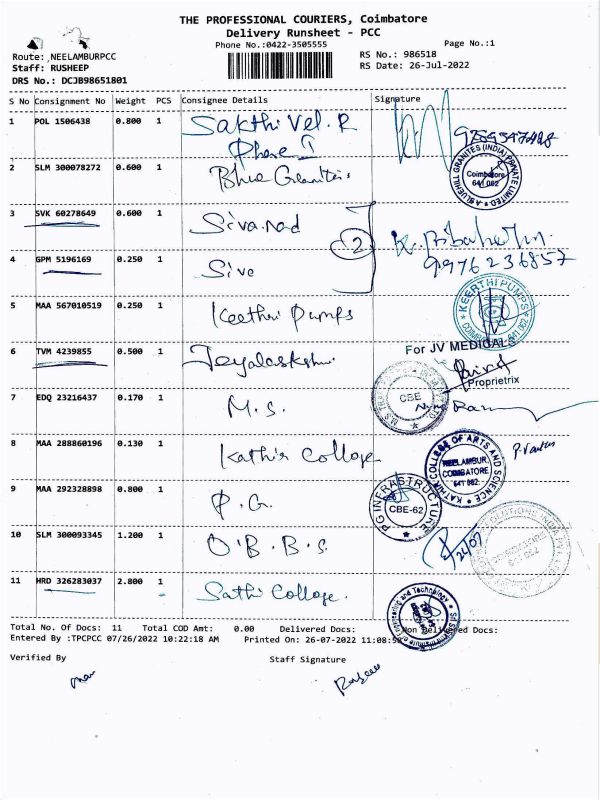 THE PROFESSIONAL COURIERS, Coimbatore
Delivery Runsheet - PCC
Phone No.:0422-3505555
Page No.:1
Route: NEELAMBURPCC
Staff: RUSHEEP
DRS No.: DCJB98651801
RS No.: 986518
RS Date: 26-Jul-2022
S No Consignment No Weight PCS Consignee Details Signature
1 POL 1506438 0.800 1 Sakthi Vel. R
Phase I
2 SLM 300078272 0.600 1 Blue Granites
BLUEHILL GRANITES (INDIA) PRIVATE LIMITED
Coimbatore
641 062
3 SVK 60278649 0.600 1 Siva nad
2
4 GPM 5196169 0.250 1 Siva
9976236857
5 MAA 567010519 0.250 1 Keethri Pumps
KEERTHI PUMPS
6 TVM 4239855 0.500 1 Jeyalaskshmi
For JV MEDICALS
Proprietrix
7 EDQ 23216437 0.170 1 M.S.
CBE
8 MAA 288860196 0.130 1 Kathir College
KATHIR COLLEGE OF ARTS AND SCIENCE
NEELAMBUR,
COIMBATORE
641 062.
9 MAA 292328898 0.800 1 P.G.
PG INFRASTRUCTURE
CBE-62
10 SLM 300093345 1.200 1 O.B.B.S.
26/07
11 HRD 326283037 2.800 1 Sathi College.
Institute of Engineering and Technology
Total No. Of Docs: 11 Total COD Amt: 0.00 Delivered Docs: Non Delivered Docs:
Entered By :TPCPCC 07/26/2022 10:22:18 AM Printed On: 26-07-2022
Verified By
Staff Signature